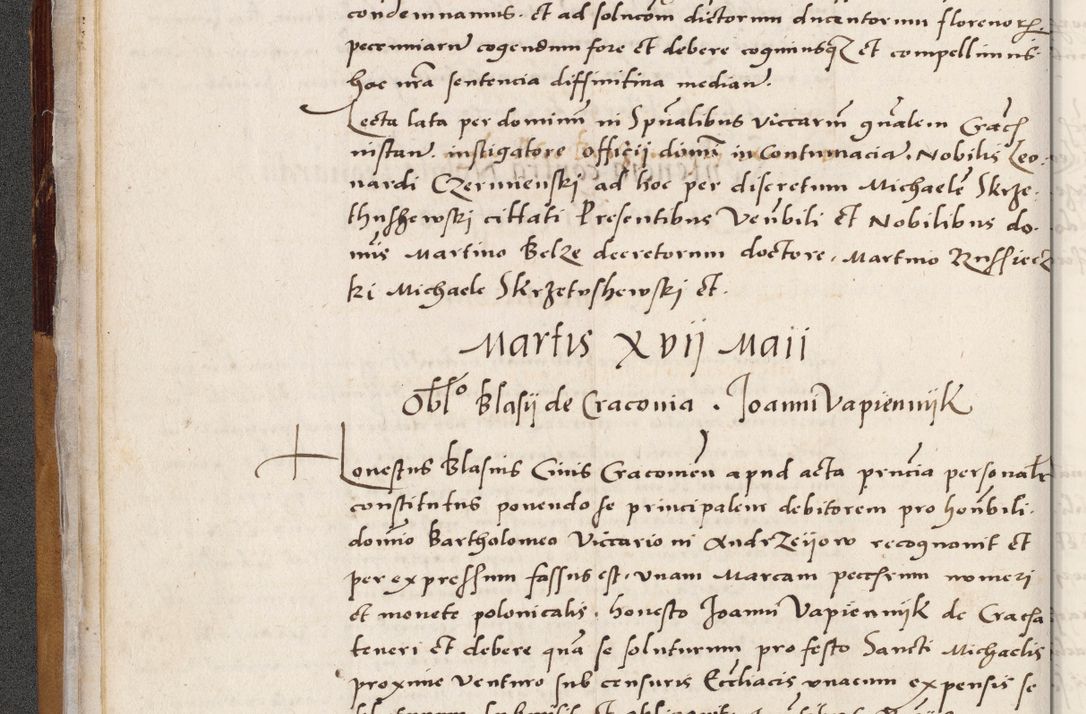 condemnamus. et ad solucom dictorum ducentorum florenorum
pecunniarum cogendum fore et debere cogimusque et compellimus
hac nra sentencia diffinitiua median.
Lecta lata per dominum in Spualibus viccarium gnalem Crac
instan. instigatore officij domini in contumacia. Nobilis Leo-
nardi Czermenski ad hoc per discretum Michaele Skrze-
thusshewski cittati Presentibus Venbili et Nobilibus do-
nis Martino Belze decretorum doctore, Martino Russiecz
ki Michaele Skrzetvshewski et.
Martis XVij Maii
Oblo Blasij de Craconia . Joanni Vapiennijk
Honestus Blasius Ciuis Cracouien apud acta pncia personalr
constitutus ponendo se principalem debitorem pro honbili.
domio Bartholomeo Viccario in AndrZeijow recognouit et
per expressum fassus est, vnam Marcam peccsrum numeri
et monete polonicalis. honesto Joanni Vapiennijk de Cracsa
teneri et debere qua se soluturum pro festo Sancti Michaelis
proxime venturo sub censuris Eccliacis vnacum expensis se